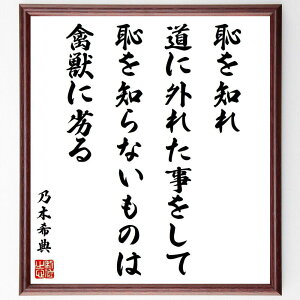 恥を知れ
道に外れた事をして
恥を知らないものは
禽獣に劣る
乃木希典